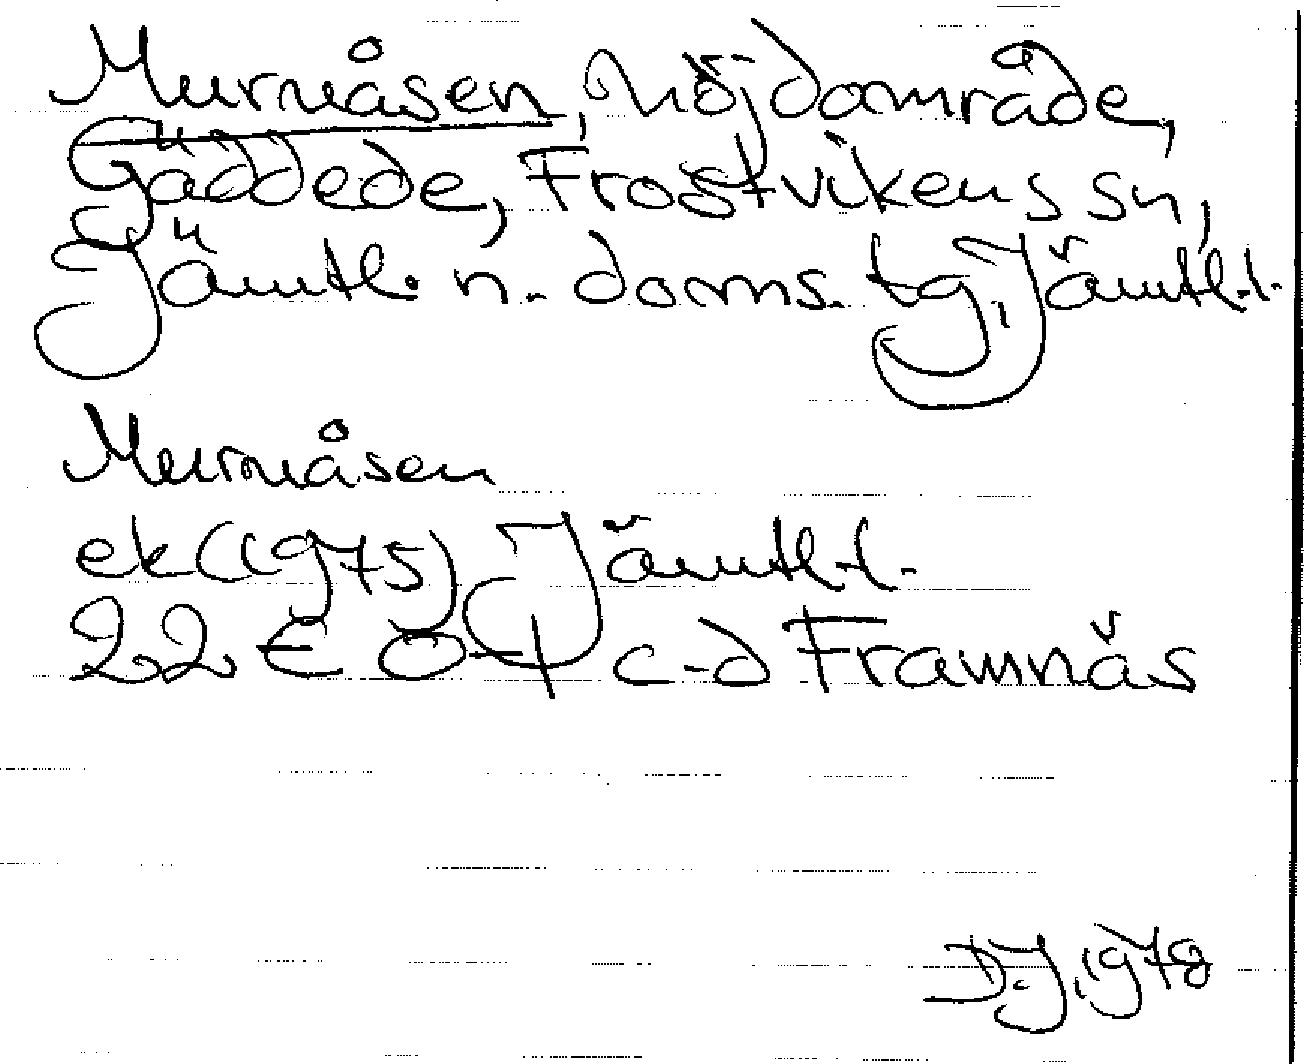 Murnåsen, höjdområde,
Gäddede, Frostvikens sn,
Jämtl. n. doms. tg, Jämtl. l.
Murnåsen
ek (1975) Jämtl. l.
22 E 0-1 c-d Framnäs
D. J. 1978